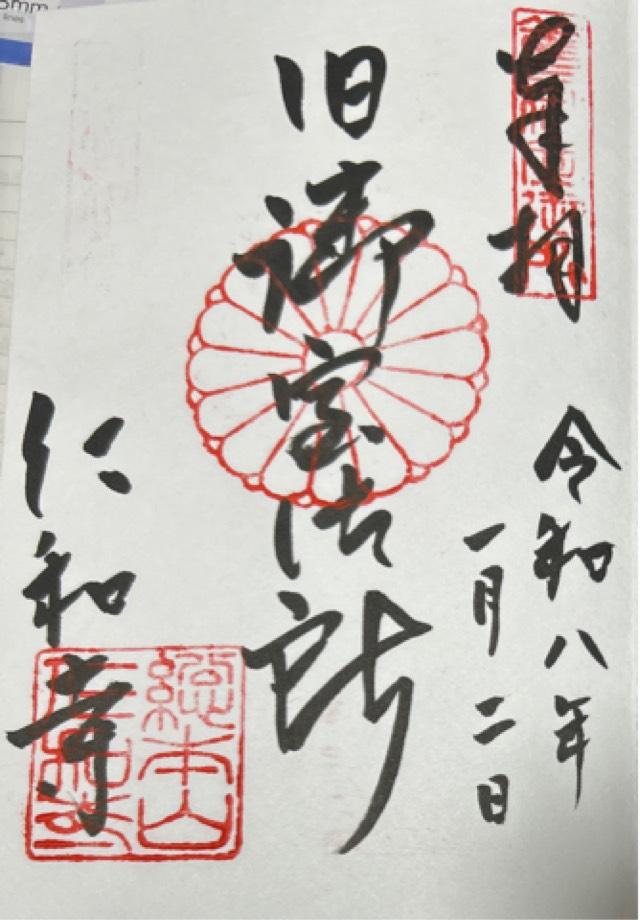 奉拝
令和八年
一月二日
旧御室御所
仁和寺
總本山
仁和寺
lines